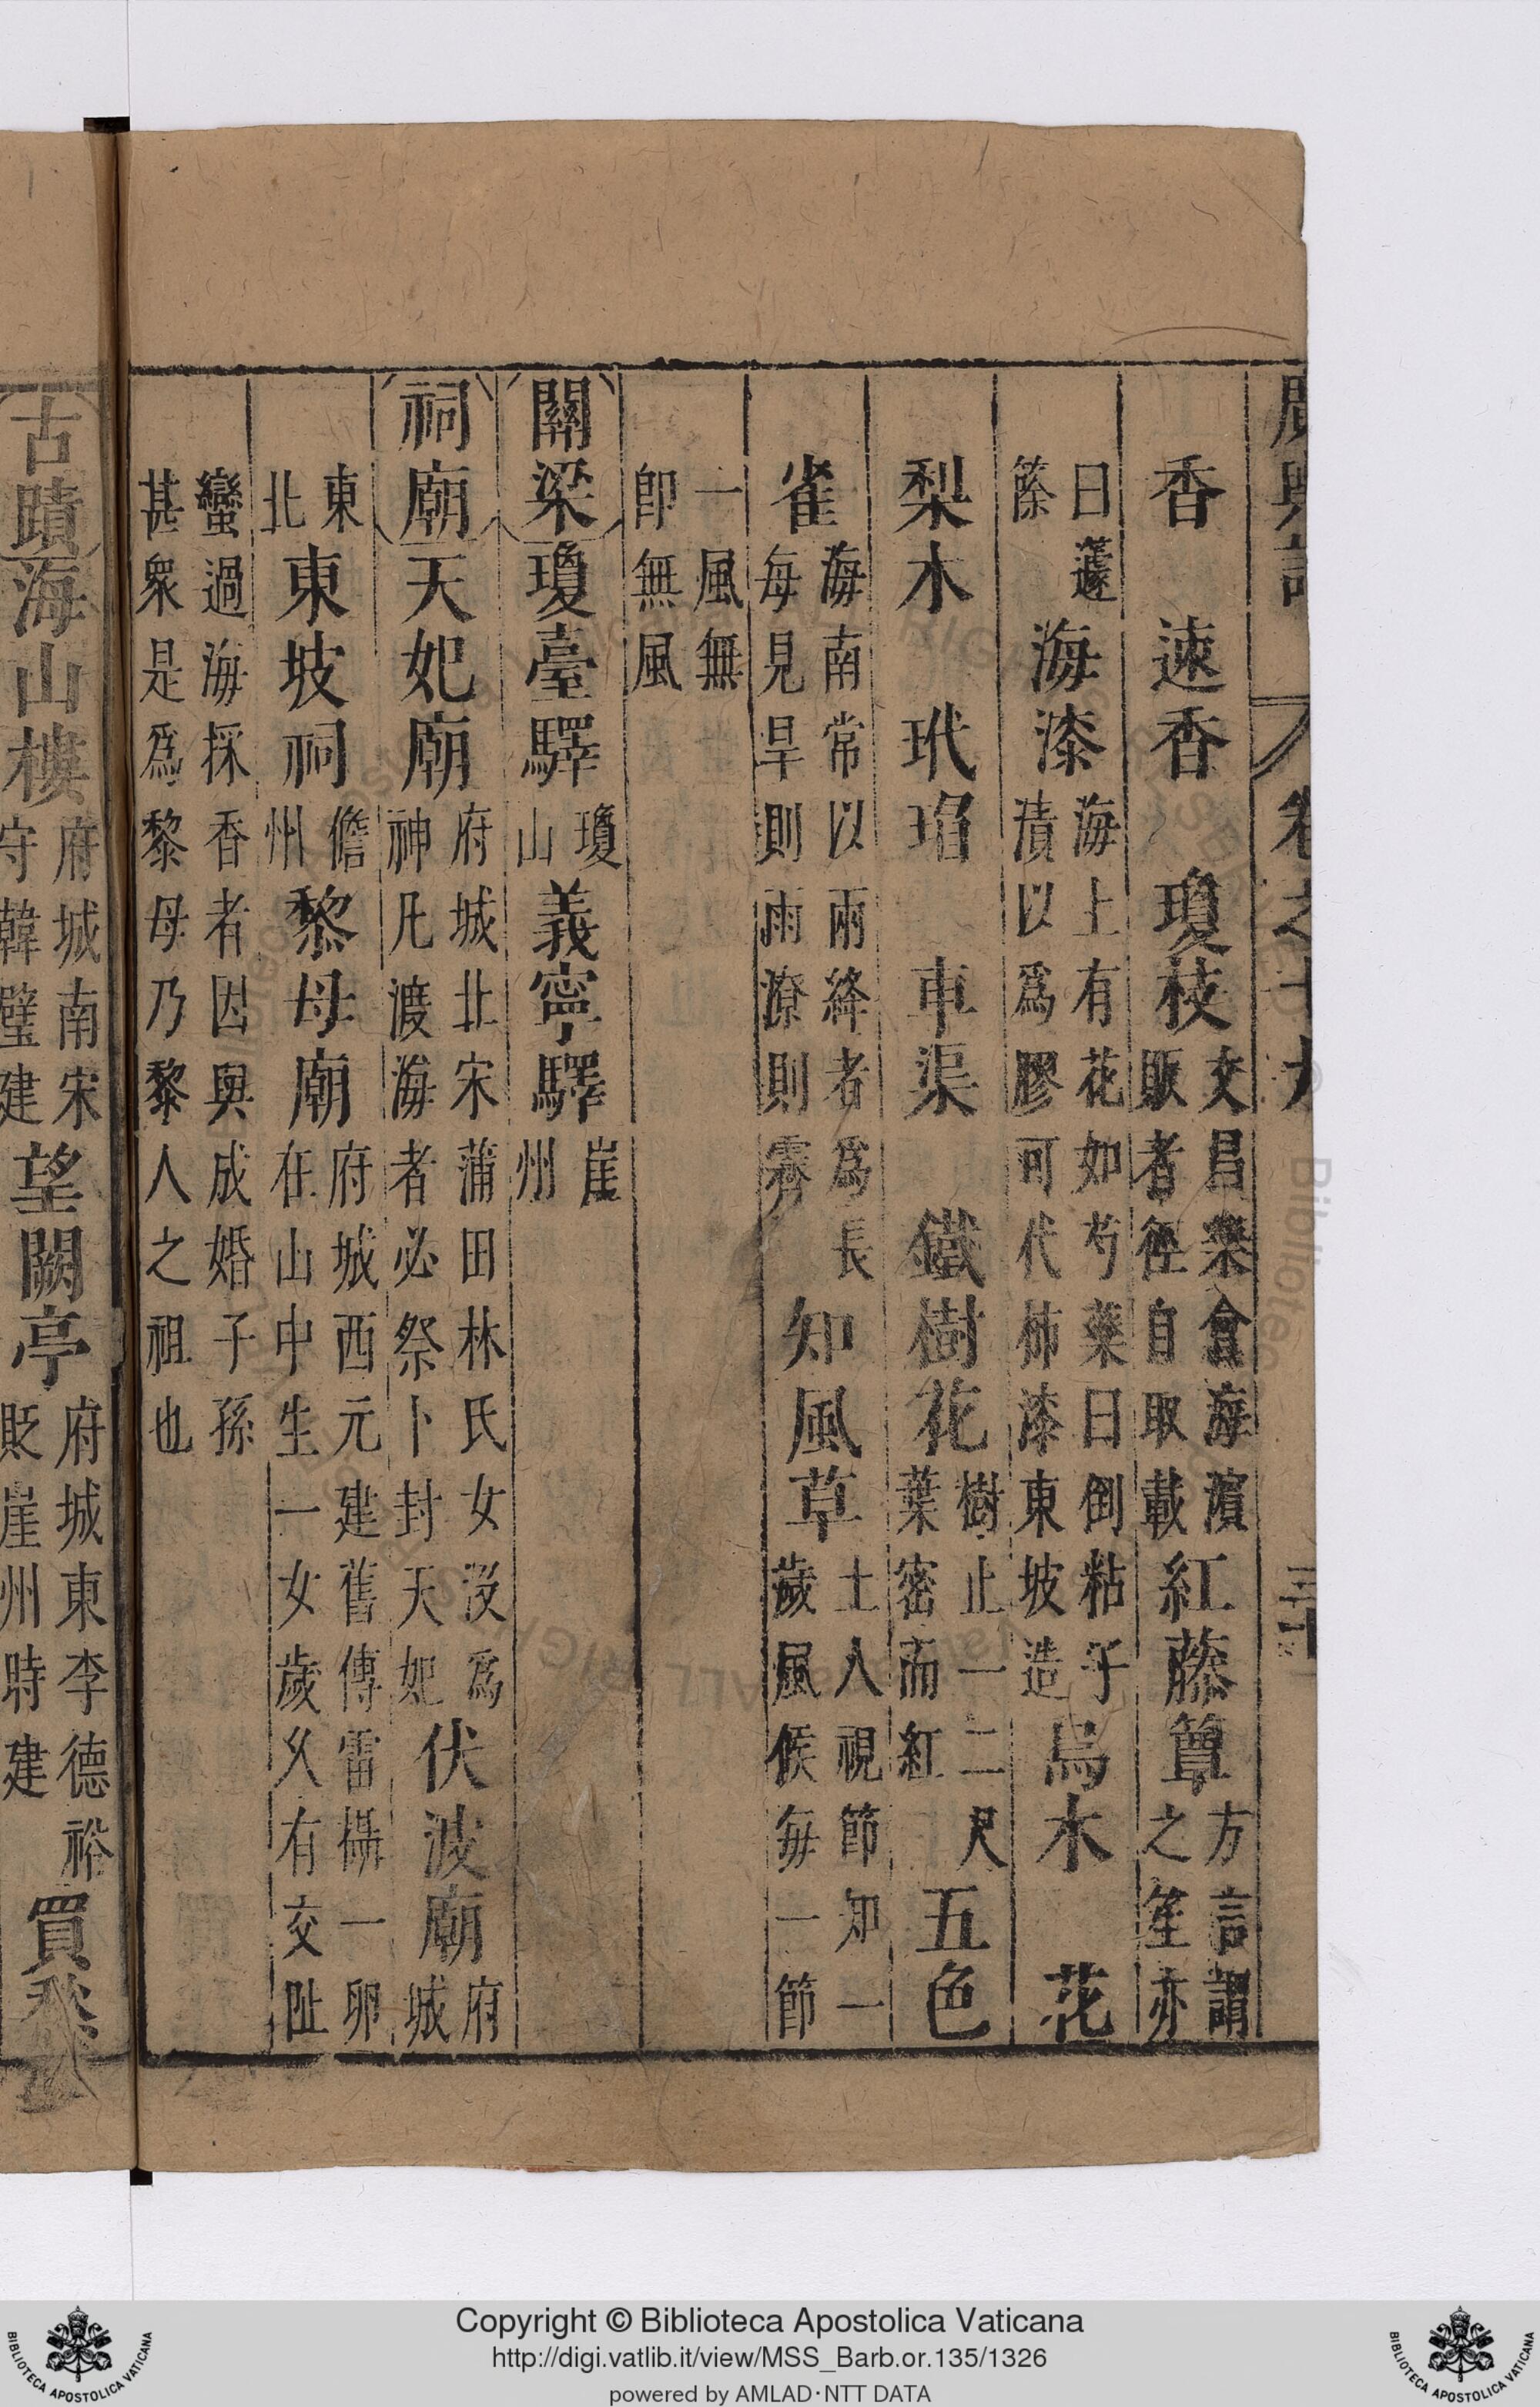 廣輿記 卷之十九 三十
香 速香 瓊枝 文昌樂會海濱
販者徑自取載 紅藤簟 方言謂
之笙亦
曰籧
篨 海漆 海上有花如芍藥日倒粘子
漬以為膠可代柿漆東坡造 烏木 花
梨木 玳瑁 車渠 鐵樹花 樹止一二尺
葉密而紅 五色
雀 海南常以兩絳者為長
每見旱則雨潦則霽 知風草 土人視節知一
歲風候每一節
一風無
即無風
關梁 瓊臺驛 瓊
山 義寧驛 崖
州
祠廟 天妃廟 府城北宋蒲田林氏女沒為
神凡渡海者必祭卜封天妃 伏波廟 府
城
東
北 東坡祠 儋
州 黎母廟 府城西元建舊傳雷攝一卵
在山中生一女歲久有交趾
蠻過海採香者因與成婚子孫
甚衆是爲黎母乃黎人之祖也
古蹟 海山樓 府城南宋
守韓璧建 望闕亭 府城東李德裕
貶崖州時建 買愁
Copyright © Biblioteca Apostolica Vaticana
http://digi.vatlib.it/view/MSS_Barb.or.135/1326
powered by AMLAD·NTT DATA
BIBLIOTECA APOSTOLICA VATICANA
BIBLIOTECA APOSTOLICA VATICANA